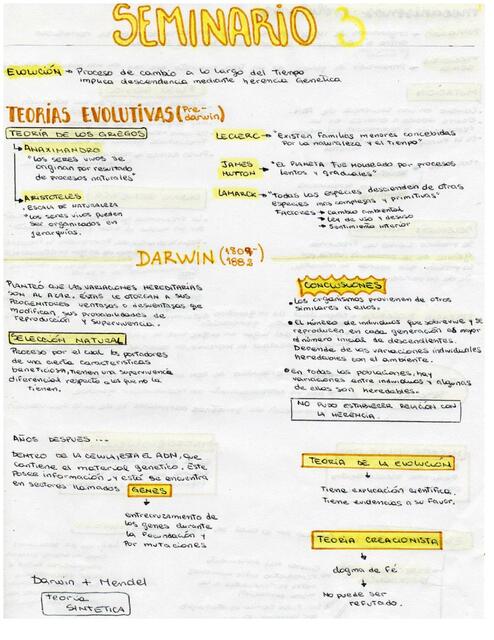 SEMINARIO 3
EVOLUCIÓN → Proceso de cambio a lo largo del Tiempo
implica descendencia mediante herencia Genética
TEORÍAS EVOLUTIVAS (Pre-darwin)
TEORÍA DE LOS GRIEGOS
ANAXIMANDRO
"los seres vivos se
originan por resultado
de procesos naturales"
ARISTÓTELES
. ESCALA DE NATURALEZA
"los seres vivos pueden
ser organizados en
jerarquías.
LECLERC → "Existen familias menores concebidas
por la naturaleza y el tiempo"
JAMES
HUTTON → "El PLANETA fue moldeado por procesos
lentos y graduales"
LAMARCK → "Todas las especies descienden de otras
especies más complejas y primitivas"
Factores → cambio ambiental
→ Ley de uso y desuso
→ Sentimiento interior
DARWIN (1809-
1882)
PLANTEÓ QUE LAS VARIACIONES HEREDITARIAS
SON AL AZAR. ESTAS LE OTORGAN A SUS
PROGENITORES VENTAJAS O desventajas que
modifican sus probabilidades de
reproducción y supervivencia.
SELECCIÓN NATURAL
Proceso por el cual los portadores
de una cierta característica
beneficiosa, tienen una supervivencia
diferencial respecto a los que no la
tienen.
CONCLUSIONES
• Los organismos provienen de otros
similares a ellos.
• El número de individuos que sobrevive y se
reproducen en cada generación es mayor
al número inicial de descendientes.
Depende de las variaciones individuales
heredables con el ambiente.
• En todas las poblaciones, hay
variaciones entre individuos y algunas
de ellas son heredables.
NO PUDO ESTABLECER RELACIÓN CON
LA HERENCIA.
AÑOS DESPUÉS ...
DENTRO DE LA CELULA, ESTA EL ADN, que
contiene el material genetico. Este
Posee información, y está se encuentra
en sectores llamados GENES
entrecruzamiento de
los genes durante
la fecundación y
por mutaciones
Darwin + Mendel
TEORÍA
SINTETICA
TEORÍA DE LA EVOLUCIÓN
Tiene explicación científica.
Tiene evidencias a su favor.
TEORÍA CREACIONISTA
dogma de fé
No puede ser
refutado.